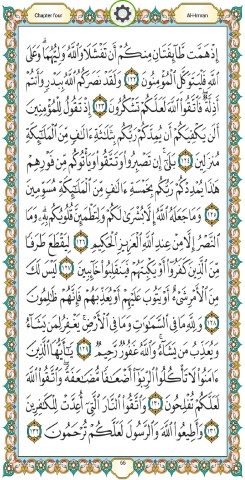 Chapter four
Al-Imran
إِذْ هَمَّت طَّآئِفَتَانِ مِنكُمْ أَن تَفْشَلَا وَٱللَّهُ وَلِيُّهُمَا ۗ وَعَلَى
ٱللَّهِ فَلْيَتَوَكَّلِ ٱلْمُؤْمِنُونَ ١٢٢ وَلَقَدْ نَصَرَكُمُ ٱللَّهُ بِبَدْرٍ وَأَنتُمْ
أَذِلَّةٌ ۖ فَٱتَّقُوا۟ ٱللَّهَ لَعَلَّكُمْ تَشْكُرُونَ ١٢٣ إِذْ تَقُولُ لِلْمُؤْمِنِينَ
أَلَن يَكْفِيَكُمْ أَن يُمِدَّكُمْ رَبُّكُم بِثَلَٰثَةِ ءَالَٰفٍ مِّنَ ٱلْمَلَٰٓئِكَةِ
مُنزَلِينَ ١٢٤ بَلَىٰٓ ۚ إِن تَصْبِرُوا۟ وَتَتَّقُوا۟ وَيَأْتُوكُم مِّن فَوْرِهِمْ
هَٰذَا يُمْدِدْكُمْ رَبُّكُم بِخَمْسَةِ ءَالَٰفٍ مِّنَ ٱلْمَلَٰٓئِكَةِ مُسَوِّمِينَ
١٢٥ وَمَا جَعَلَهُ ٱللَّهُ إِلَّا بُشْرَىٰ لَكُمْ وَلِتَطْمَئِنَّ قُلُوبُكُم بِهِۦ ۗ وَمَا
ٱلنَّصْرُ إِلَّا مِنْ عِندِ ٱللَّهِ ٱلْعَزِيزِ ٱلْحَكِيمِ ١٢٦ لِيَقْطَعَ طَرَفًا
مِّنَ ٱلَّذِينَ كَفَرُوٓا۟ أَوْ يَكْبِتَهُمْ فَيَنقَلِبُوا۟ خَآئِبِينَ ١٢٧ لَيْسَ لَكَ
مِنَ ٱلْأَمْرِ شَىْءٌ أَوْ يَتُوبَ عَلَيْهِمْ أَوْ يُعَذِّبَهُمْ فَإِنَّهُمْ ظَٰلِمُونَ
١٢٨ وَلِلَّهِ مَا فِى ٱلسَّمَٰوَٰتِ وَمَا فِى ٱلْأَرْضِ ۚ يَغْفِرُ لِمَن يَشَآءُ
وَيُعَذِّبُ مَن يَشَآءُ ۚ وَٱللَّهُ غَفُورٌ رَّحِيمٌ ١٢٩ يَٰٓأَيُّهَا ٱلَّذِينَ
ءَامَنُوا۟ لَا تَأْكُلُوا۟ ٱلرِّبَوٰٓا۟ أَضْعَٰفًا مُّضَٰعَفَةً ۖ وَٱتَّقُوا۟ ٱللَّهَ
لَعَلَّكُمْ تُفْلِحُونَ ١٣٠ وَٱتَّقُوا۟ ٱلنَّارَ ٱلَّتِىٓ أُعِدَّتْ لِلْكَٰفِرِينَ
١٣١ وَأَطِيعُوا۟ ٱللَّهَ وَٱلرَّسُولَ لَعَلَّكُمْ تُرْحَمُونَ ١٣٢
66